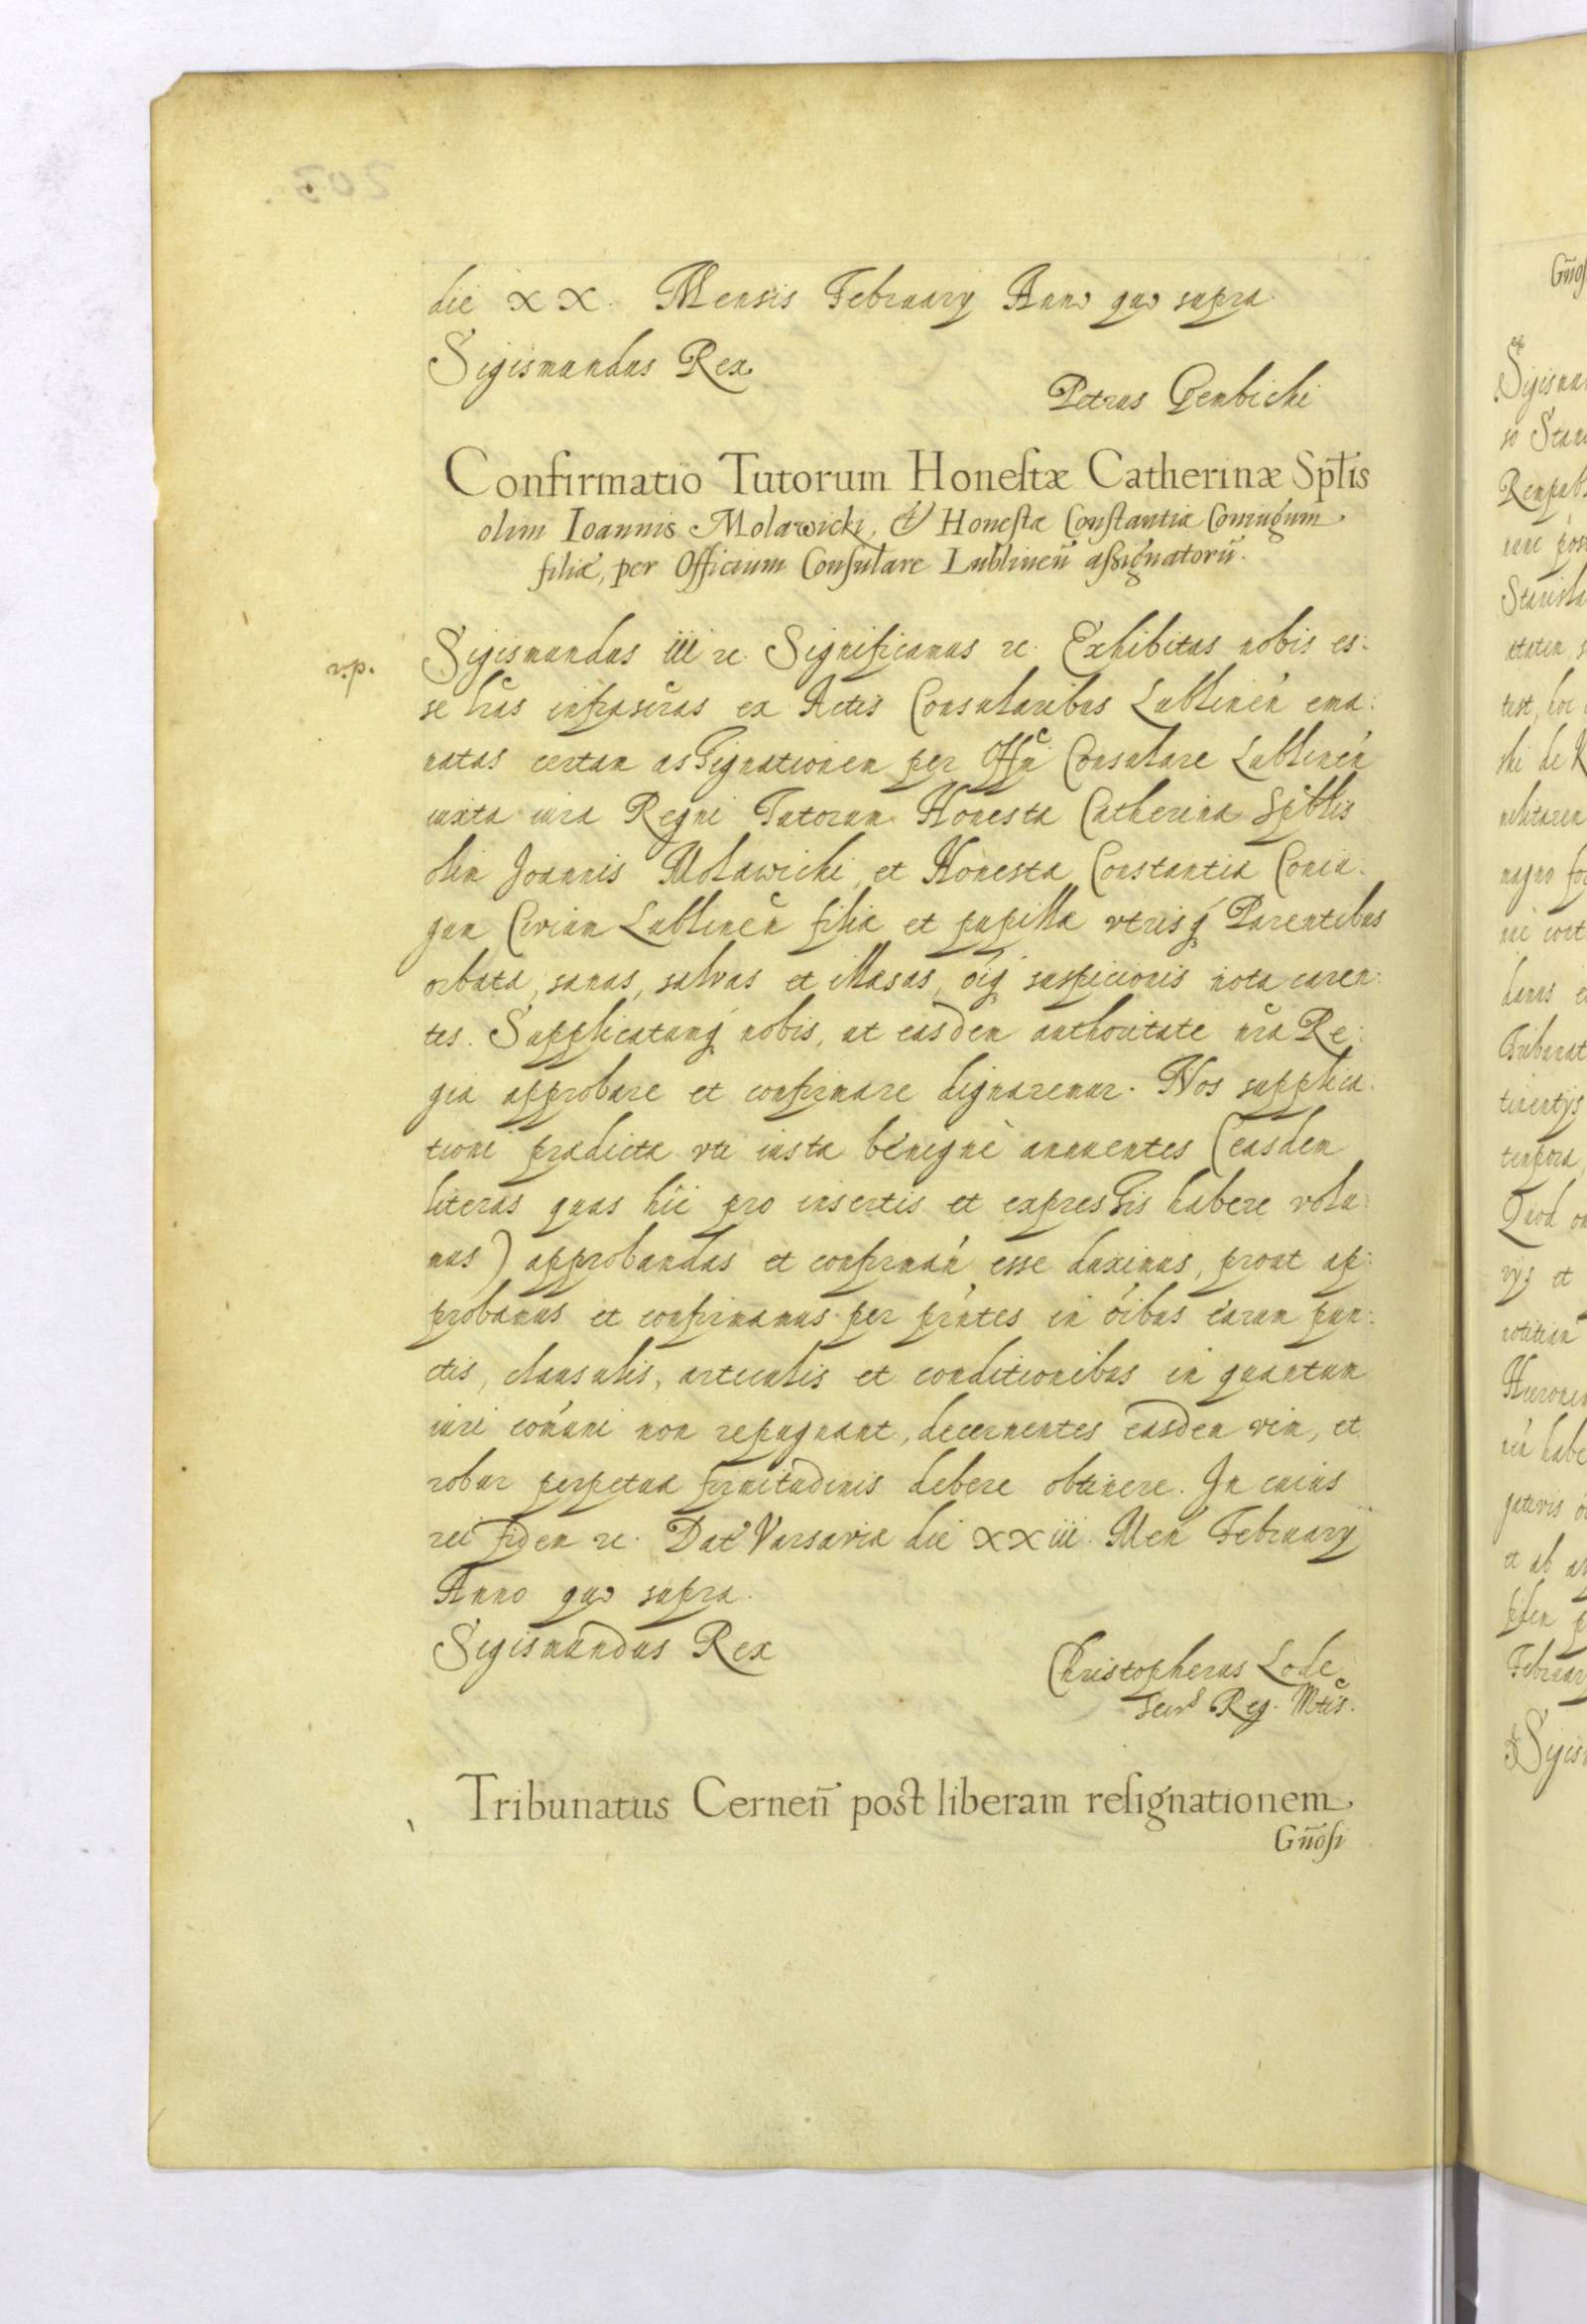 die XX. Mensis February Anno quo supra
Sigismundus Rex
Petrus Gembicki
Confirmatio Tutorum Honestæ Catherinæ Sptlis
olim Ioannis Molawicki, & Honestæ Constantiæ Coniugum
filiæ, per Officium Consulare Lublineñ assignatorũ.
v.p.
Sigismundus iii rc. Significamus rc. Exhibitas nobis es:
se lras infrascras ex Actis Consularibus Lublineñ ema:
natas certam assignationem per Offn Consulare Lublineñ
iuxta iura Regni Tutorum Honesta Catherina Spttlis
olim Joannis Molawicki, et Honesta Constantia Coniu:
gum Civium Lublineñ filia et pupilla utrisq Parentibus
orbata, sanas, salvas et illasas, oiq suspicionis nota caren:
tes. Supplicatumq nobis, ut easdem authoritate nra Re:
gia approbare et confirmare dignaremur. Nos supplica:
tioni pradicta uti iusta benignè annuentes (easdem
literas quas hîc pro insertis et expressis habere volu:
mus) approbandas et confirmañ esse duximus, prout ap:
probamus et confirmamus per prntes in oibus earum pun:
ctis, clausulis, articulis et conditionibus in quantum
iuri comuni non repugnant, decernentes easdem vim, et
robur perpetua firmitudinis debere obtinere. In cuius
rei fidem rc. Dat Varsavia die XXiii. Men February
Anno quo supra.
Sigismundus Rex
Christopherus Lode
Secrs Reg. Mtis.
Tribunatus Cerneñ post liberam resignationem
Gñosi